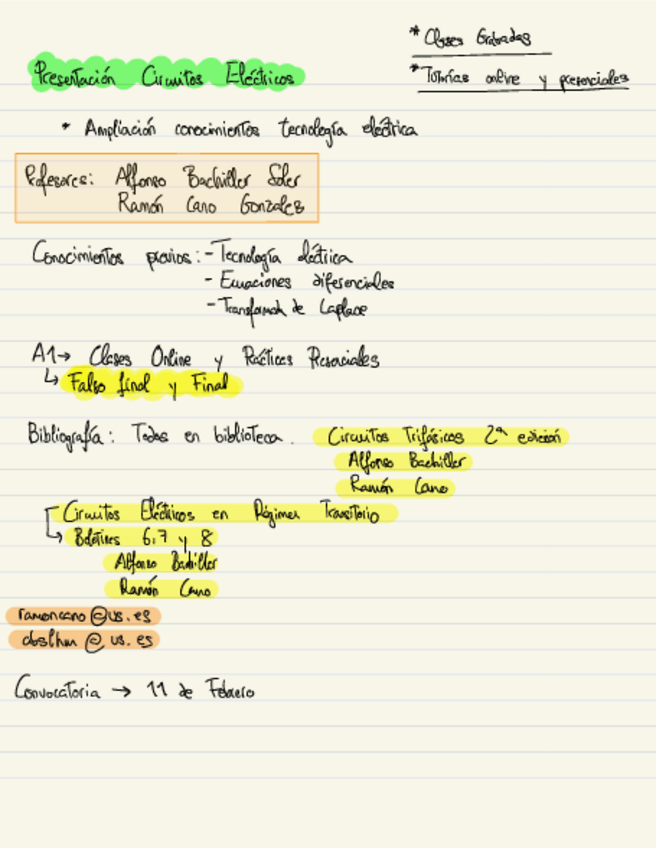 * Clases Grabadas
* Tutorías online y presenciales
Presentación Circuitos Eléctricos
* Ampliación conocimientos tecnología eléctrica
Profesores: Alfonso Bachiller Soler
Ramón Cano Gonzalez
Conocimientos previos: - Tecnología eléctrica
- Ecuaciones diferenciales
- Transformada de Laplace
A1 → Clases Online y Prácticas Presenciales
↳ Falso final y Final
Bibliografía: Todos en biblioteca. Circuitos Trifásicos 2ª edición
Alfonso Bachiller
Ramón Cano
Circuitos Eléctricos en Régimen Transitorio
↳ Boletines 6,7 y 8
Alfonso Bachiller
Ramón Cano
ramoncano@us.es
@us.es
Convocatoria → 11 de Febrero